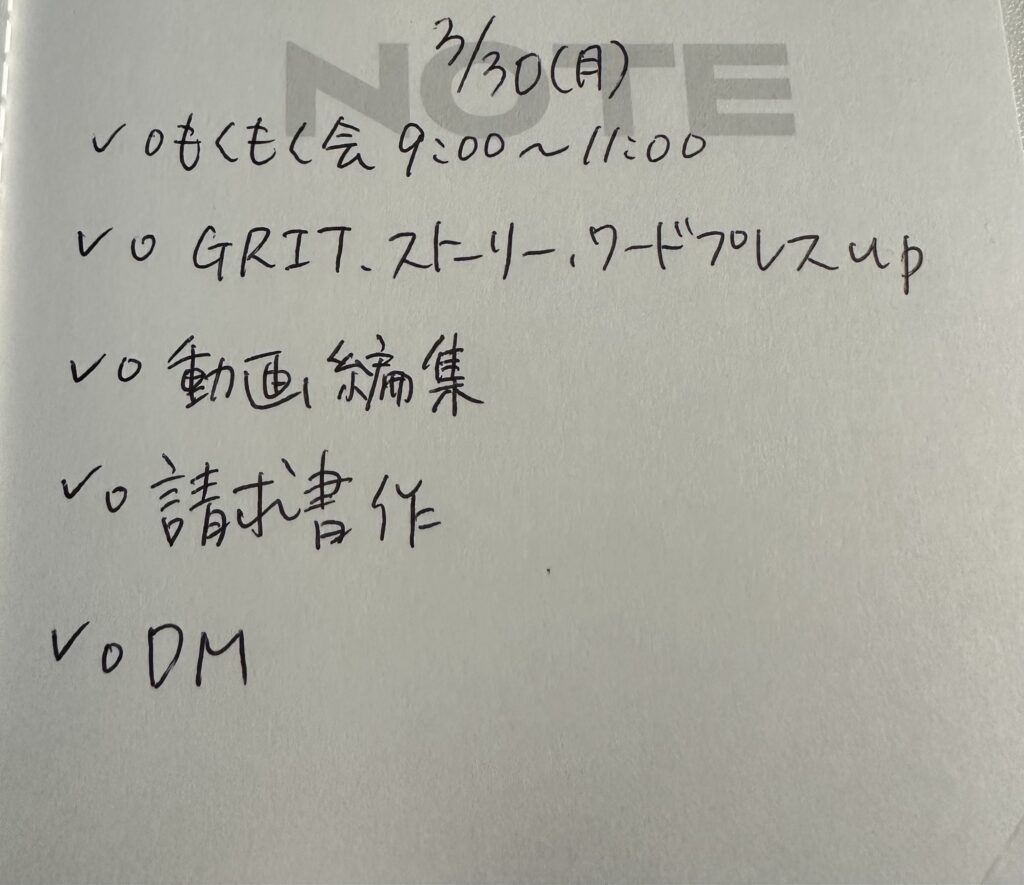 NOTE
3/30(月)
✓ ○もくもく会 9:00〜11:00
✓ ○ GRIT、ストーリー、ワードプレスup
✓ ○ 動画編集
✓ ○ 請求書作
✓ ○ DM